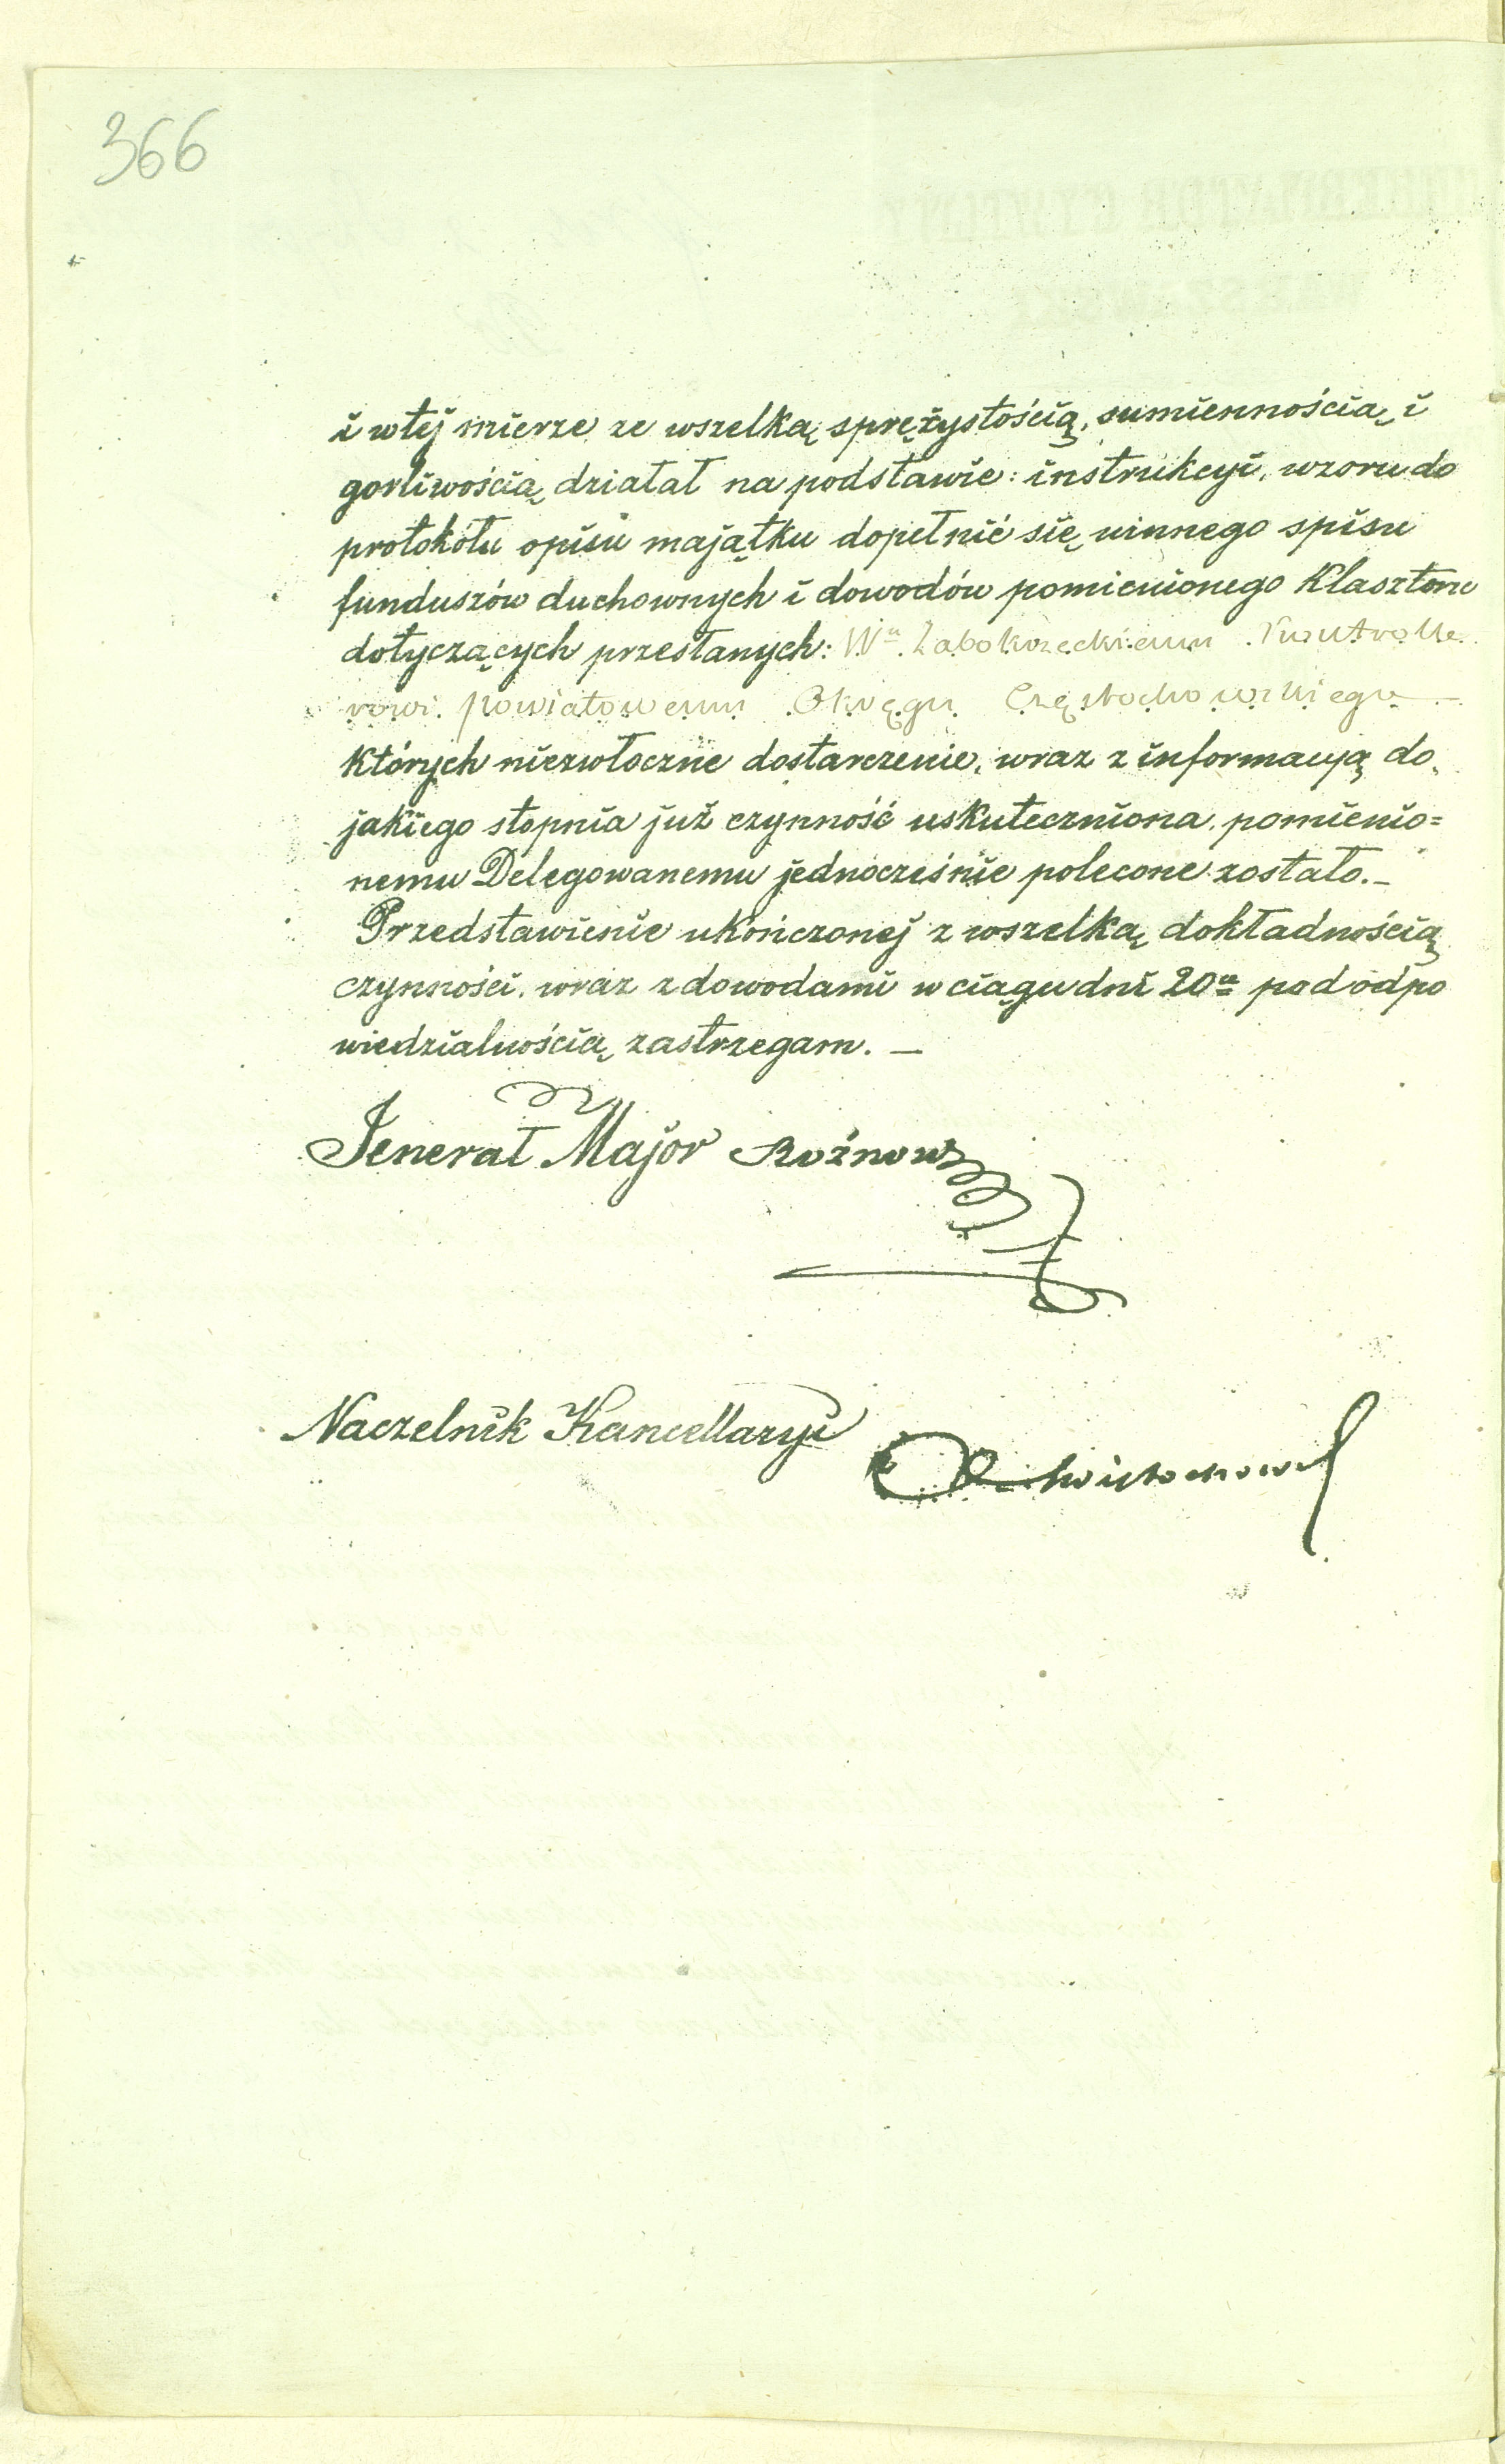 366
i w tej mierze ze wszelką sprężystością, sumiennością i
gorliwością działał na podstawie: instrukcyi, wzoru do
protokółu opisu majątku dopełnić się winnego spisu
funduszów duchownych i dowodów pomienionego Klasztoru
dotyczących przesłanych: Wu Żabokrzeckiemu Kontrolle
rowi powiatowemu Okręgu Częstochowskiego —
których niezwłoczne dostarczenie, wraz z informacyą do
jakiego stopnia już czynność uskuteczniona, pomienio=
nemu Delegowanemu jednocześnie polecone zostało.—
Przedstawienie ukończonej z wszelką dokładnością
czynności, wraz z dowodami w ciągu dni 20u pod odpo
wiedzialnością zastrzegam. —
Jenerał Major Rożnow
Naczelnik Kancellaryi